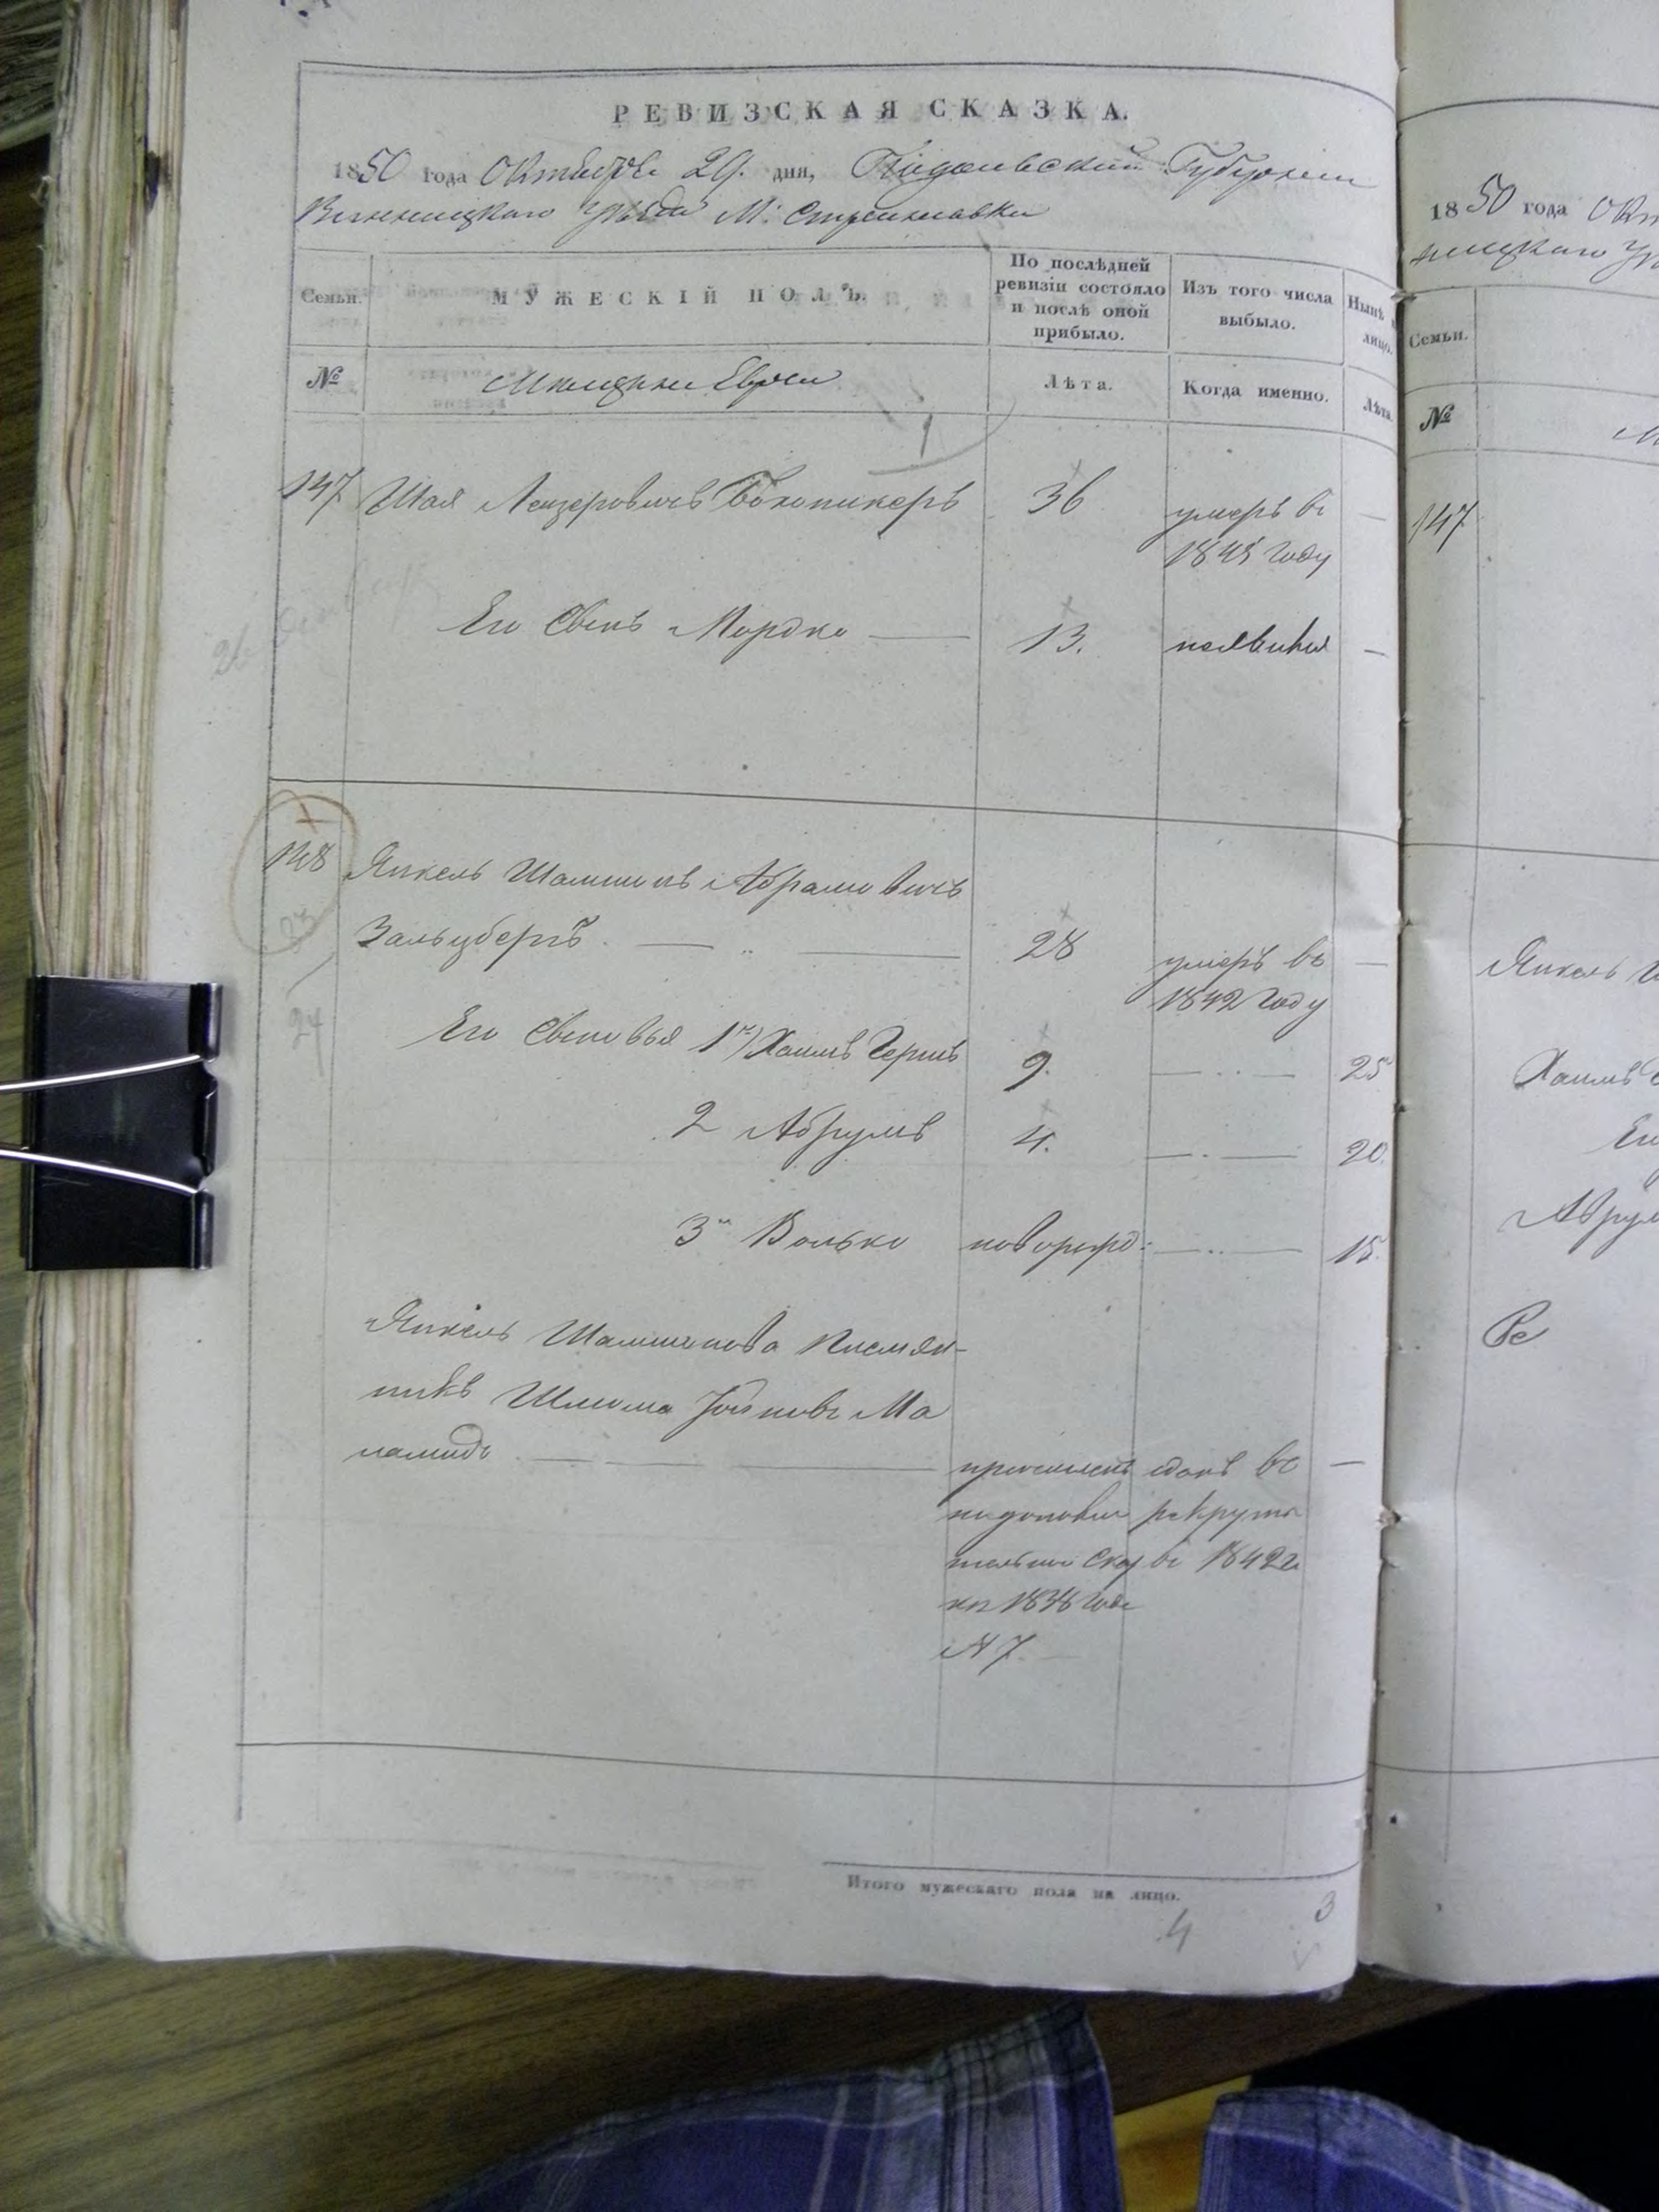 РЕВИЗСКАЯ СКАЗКА.
1850 года Октября 29. дня, Подольской Губернии
Винницкого Уезда М: Стрижавки
Семьи. МУЖЕСКІЙ ПОЛЪ. По послѣдней ревизіи состояло и послѣ оной прибыло. Изъ того числа выбыло. Нынѣ на лицо.
№ Мещане Евреи Лѣта. Когда именно. Лѣта.
147 Шая Лейзеровичъ 36 умеръ въ —
1845 году
Его Сынъ Мордко — 13. неявился —
148 Янкель Абрамовичъ
Зальцбергъ. — 28 умеръ въ —
1842 году
Его Сыновья 1й) Хаимъ Гершъ 9. — 25
2 Абрумъ 4. — 20.
3й Волько новорожд: — 15.
Янкель племян-
никъ Шлиома
— причисленъ сданъ въ —
по дополни рекруты
тельной Сказ въ 1842 г.
ке 1838 года
№ 7.
Итого мужескаго пола на лицо. 3
4
1850 года Окт
ницкаго Уѣ
Семьи.
№ М
147
Янкель
Хаимъ
Ег
Абрум